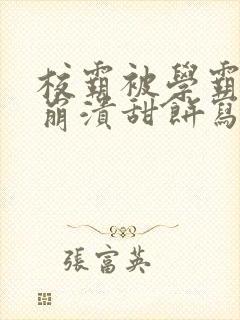 校霸被學霸
崩潰甜餅寫
張富英